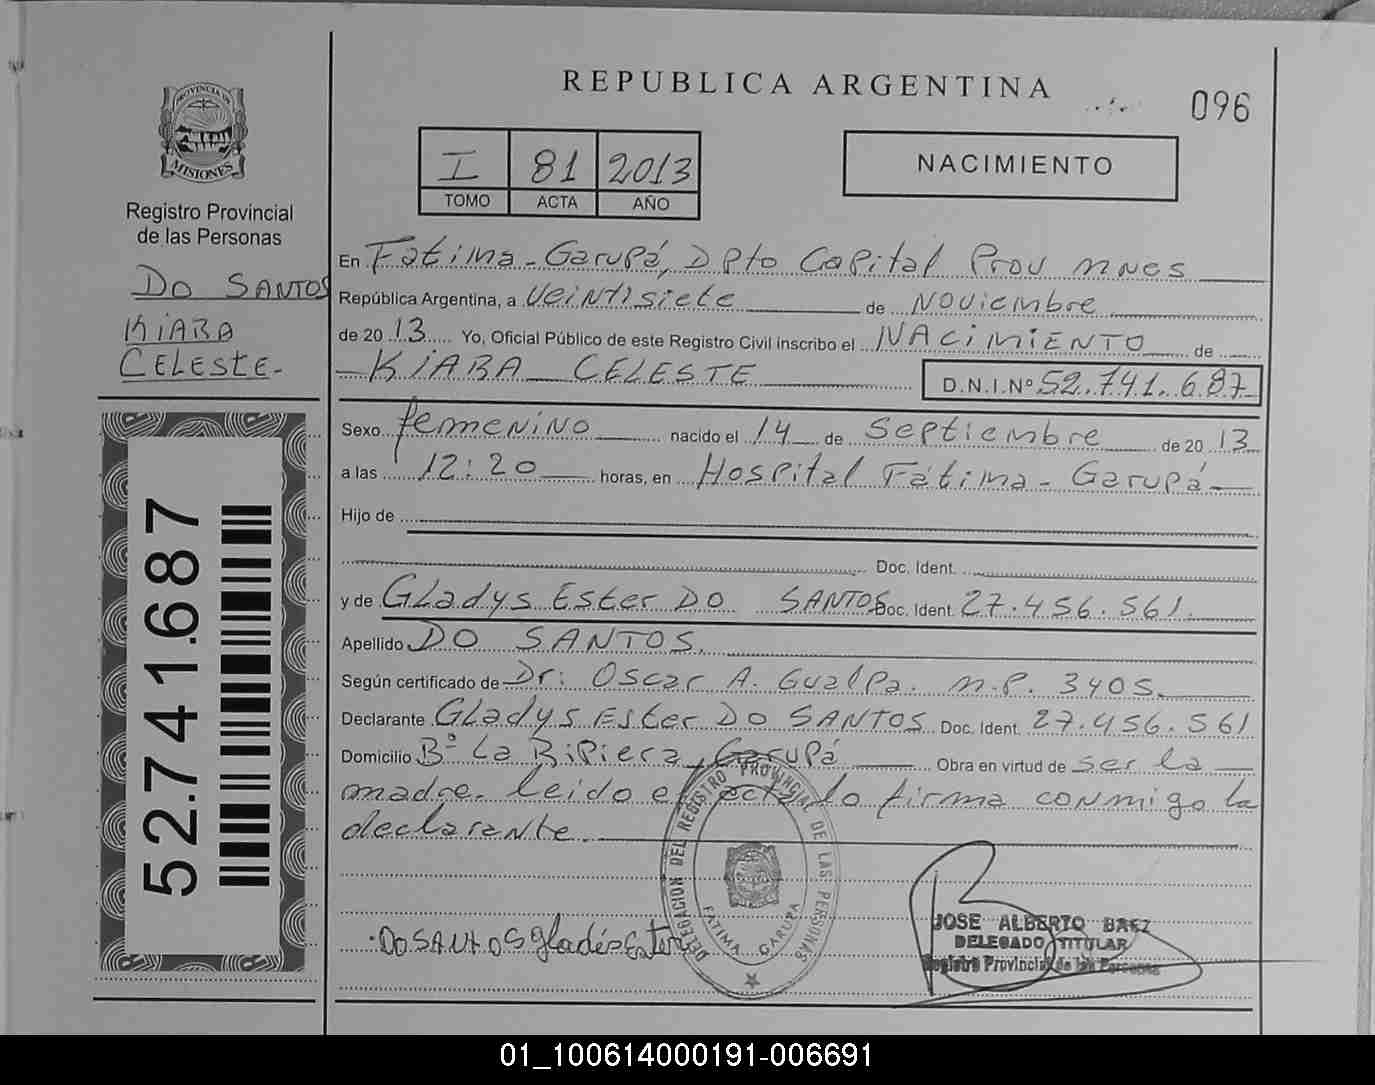 PROVINCIA DE
MISIONES
Registro Provincial
de las Personas
DO SANTOS
KIARA
CELESTE.-
52.741.687
REPUBLICA ARGENTINA
096
I 81 2013
TOMO ACTA AÑO
NACIMIENTO
En Fatima - Garupá, Dpto Capital Prov mnes
República Argentina, a veintisiete de Noviembre
de 20 13 Yo, Oficial Público de este Registro Civil inscribo el NACIMIENTO de
KIARA CELESTE D.N.I.Nº 52.741.687
Sexo femenino nacido el 14 de Septiembre de 20 13
a las 12:20 horas, en Hospital Fátima - Garupá -
Hijo de
Doc. Ident.
y de GLadys Ester DO SANTOS Doc. Ident. 27.456.561.
Apellido DO SANTOS.
Según certificado de Dr: Oscar A. Gualpa. m.p. 3405.
Declarante GLadys Ester DO SANTOS Doc. Ident. 27.456.561
Domicilio Bº La Ripiera, Garupá Obra en virtud de ser la
madre. leido el acta lo firma conmigo la
declarante.
DELEGACION DEL REGISTRO PROVINCIAL DE LAS PERSONAS
FATIMA GARUPA
DO SANTOS Gladis Ester
JOSE ALBERTO BAEZ
DELEGADO TITULAR
Registro Provincial de las Personas
01_100614000191-006691